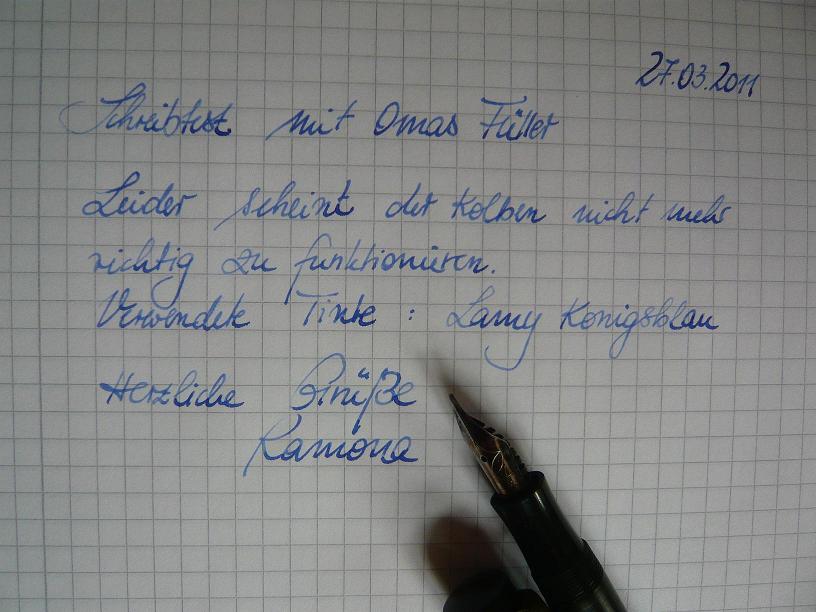 27.03.2011
Schreibtest mit Omas Füller
Leider scheint der Kolben nicht mehr
richtig zu funktionieren.
Verwendete Tinte : Lamy Königsblau
Herzliche Grüße
Ramona